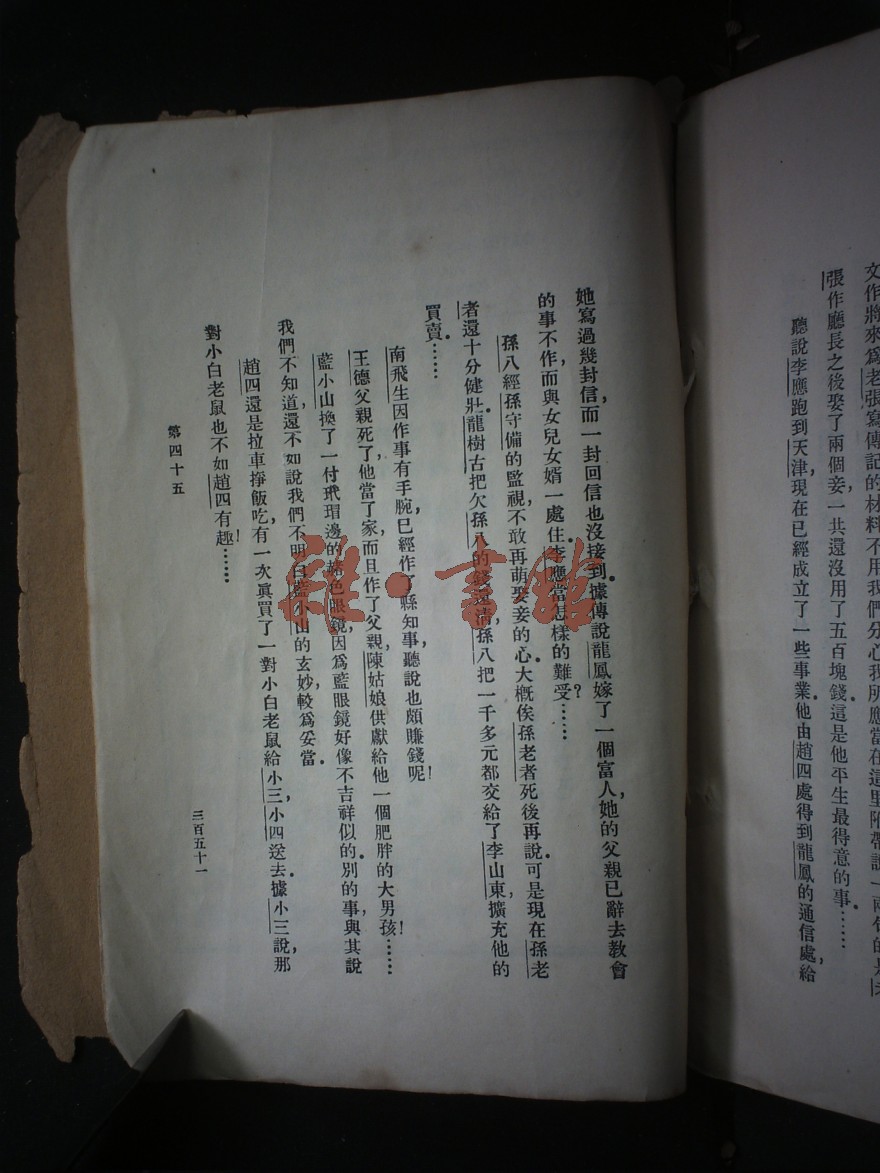 文作將來爲老張寫傳記的材料不用我們分心我所應當在這里附帶說一兩句的是老
張作廳長之後娶了兩個妾一共還沒用了五百塊錢。這是他平生最得意的事……
聽說李應跑到天津，現在已經成立了一些事業，他由趙四處得到龍鳳的通信處給
她寫過幾封信，而一封回信也沒接到。據傳說龍鳳嫁了一個富人，她的父親已辭去教會
的事不作，而與女兒女婿一處住。李應當怎樣的難受？……
孫八經孫守備的監視，不敢再萌娶妾的心。大概俟孫老者死後再說。可是現在孫老
者還十分健壯。龍樹古把欠孫八的錢還清，孫八把一千多元都交給了李山東，擴充他的
買賣。……
南飛生因作事有手腕，已經作了縣知事，聽說也頗賺錢呢！
王德父親死了，他當了家，而且作了父親，陳姑娘供獻給他一個肥胖的大男孩！……
藍小山換了一付玳瑁邊的赭色眼鏡，因爲藍眼鏡好像不吉祥似的。別的事，與其說
我們不知道，還不如說我們不明白藍小山的玄妙，較爲妥當。
趙四還是拉車掙飯吃，有一次眞買了一對小白老鼠給小三，小四送去。據小三說，那
對小白老鼠也不如趙四有趣！……
第四十五
三百五十一
雜·書館